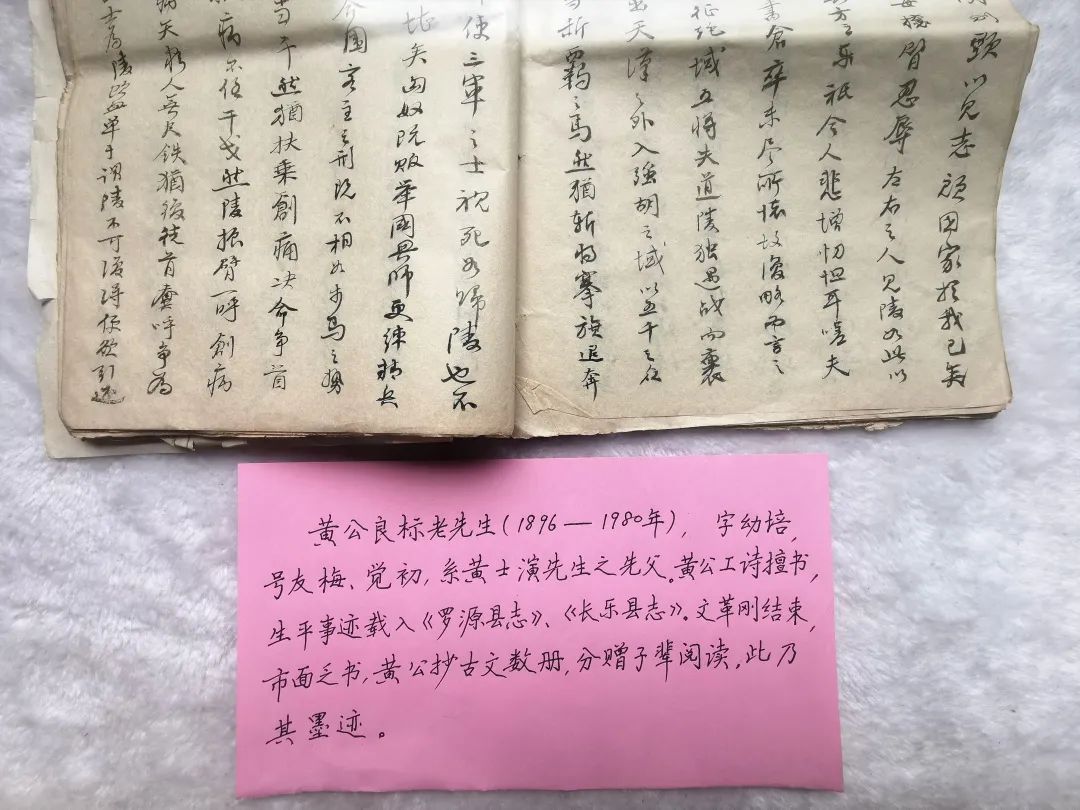 頸以见志顾国家於我已矣
每攘臂忍辱左右之人见陵如此以
方之乐祇令人悲增忉怛耳嗟夫
書倉卒未尽所怀故復略而言之
征绝域五将失道陵独遇战而裹
出天漢之外入強胡之域以五千之众
羁之馬然猶斬将搴旗追奔
使三軍之士视死如归陵也不
此矣匈奴既败举國興师更練精兵
合圍客主之刑既不相如步馬之勢
当千然猶扶乘創痛决命争首
病不任干戈然陵振臂一呼創病
矢窮人無尺鉄猶復徒首奮呼争為
士為陵飲血单于谓陵不可復得便欲引还
黄公良标老先生(1896—1980年),字幼培,
号友梅、觉初,系黄士演先生之先父。黄公工诗擅书,
生平事迹载入《罗源县志》、《长乐县志》。文革刚结束,
市面乏书,黄公抄古文数册,分赠子辈阅读,此乃
其墨迹。